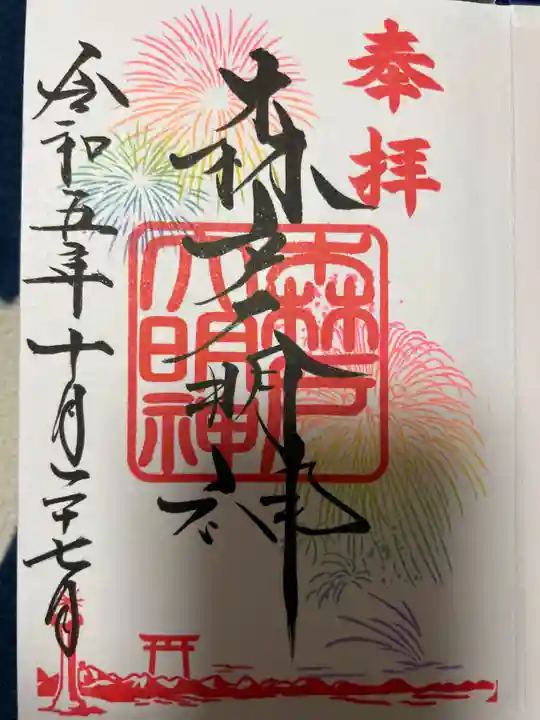 奉拝
森戸大明神
森戸大明神
令和五年十月二十七日